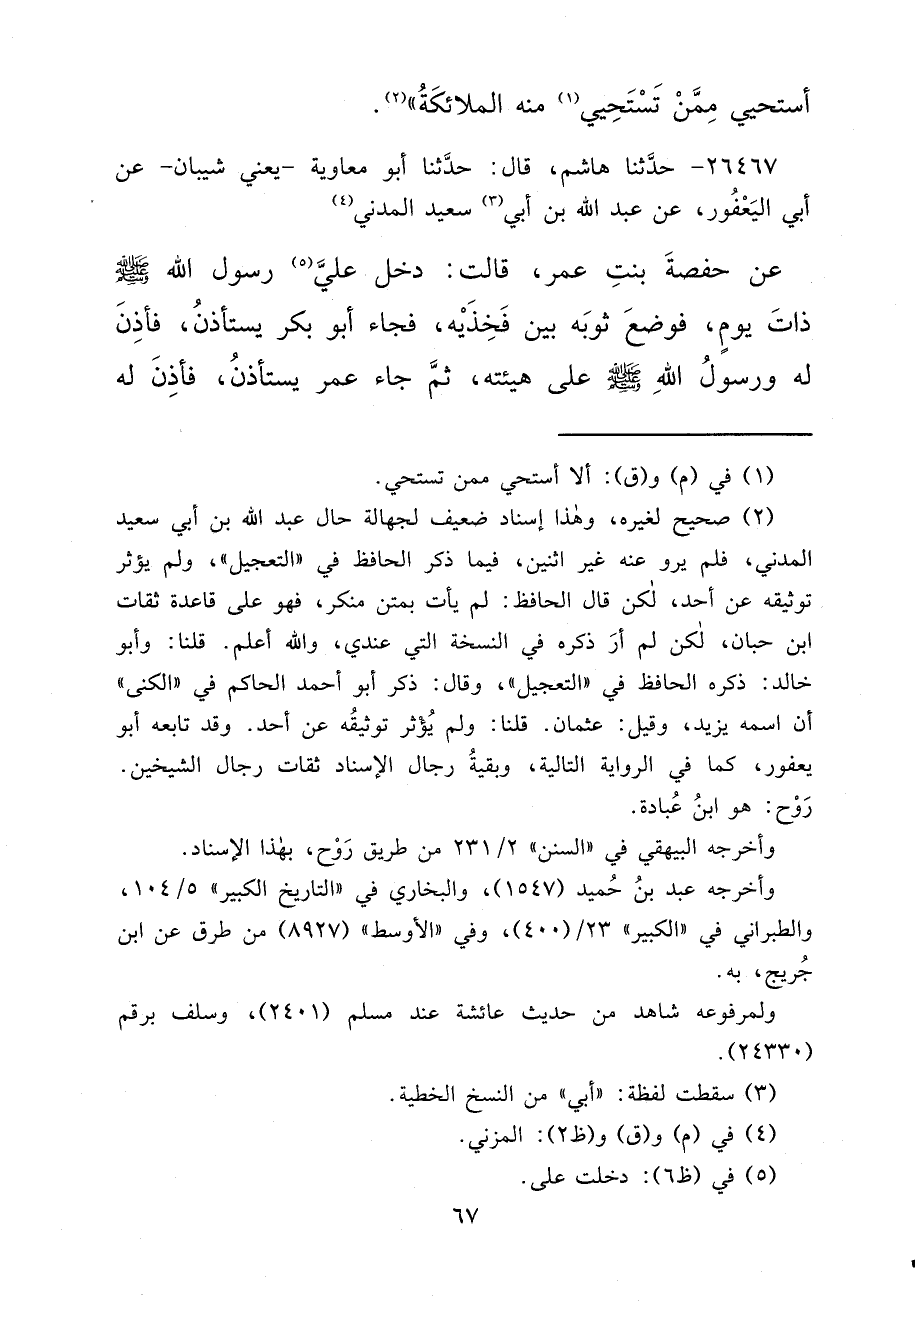 أستحيي مِمَّنْ تَسْتَحِيي(١) منه الملائكَةُ»(٢).
٢٦٤٦٧- حدَّثنا هاشم، قال: حدَّثنا أبو معاوية -يعني شيبان- عن
أبي اليَعْفُور، عن عبد الله بن أبي(٣) سعيد المدني(٤)
عن حفصةَ بنتِ عمر، قالت: دخل عليَّ(٥) رسول الله ﷺ
ذاتَ يومٍ، فوضعَ ثوبَه بين فَخِذَيْه، فجاء أبو بكر يستأذنُ، فأذِنَ
له ورسولُ اللهِ ﷺ على هيئته، ثمَّ جاء عمر يستأذنُ، فأذِنَ له
(١) في (م) و(ق): ألا أستحي ممن تستحي.
(٢) صحيح لغيره، وهٰذا إسناد ضعيف لجهالة حال عبد الله بن أبي سعيد
المدني، فلم يرو عنه غير اثنين، فيما ذكر الحافظ في «التعجيل»، ولم يؤثر
توثيقه عن أحد، لٰكن قال الحافظ: لم يأت بمتن منكر، فهو على قاعدة ثقات
ابن حبان، لٰكن لم أرَ ذكره في النسخة التي عندي، والله أعلم. قلنا: وأبو
خالد: ذكره الحافظ في «التعجيل»، وقال: ذكر أبو أحمد الحاكم في «الكنى»
أن اسمه يزيد، وقيل: عثمان. قلنا: ولم يُؤثر توثيقُه عن أحد. وقد تابعه أبو
يعفور، كما في الرواية التالية، وبقيةُ رجال الإسناد ثقات رجال الشيخين.
رَوْح: هو ابنُ عُبادة.
وأخرجه البيهقي في «السنن» ٢٣١/٢ من طريق رَوْح، بهٰذا الإسناد.
وأخرجه عبد بنُ حُميد (١٥٤٧)، والبخاري في «التاريخ الكبير» ١٠٤/٥،
والطبراني في «الكبير» ٢٣/(٤٠٠)، وفي «الأوسط» (٨٩٢٧) من طرق عن ابن
جُريج، به.
ولمرفوعه شاهد من حديث عائشة عند مسلم (٢٤٠١)، وسلف برقم
(٢٤٣٣٠).
(٣) سقطت لفظة: «أبي» من النسخ الخطية.
(٤) في (م) و(ق) و(ظ٢): المزني.
(٥) في (ظ٦): دخلت على.
٦٧